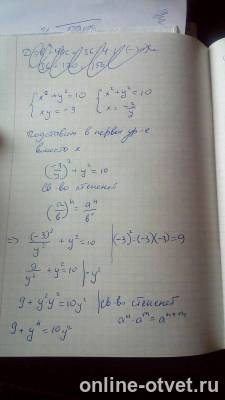 { x² + y² = 10   { x² + y² = 10
xy = -3   x = -3/y
Подставим в первое ур-е
вместо x
(-3/y)² + y² = 10
Св-во степеней
(a/b)ⁿ = aⁿ/bⁿ
=> (-3)²/y² + y² = 10 | (-3)² = (-3)(-3) = 9
9/y² + y² = 10 | · y²
9 + y² y² = 10y² | Св-во степеней
aⁿ · aᵐ = aⁿ⁺ᵐ
9 + y⁴ = 10y²
online-otvet.ru